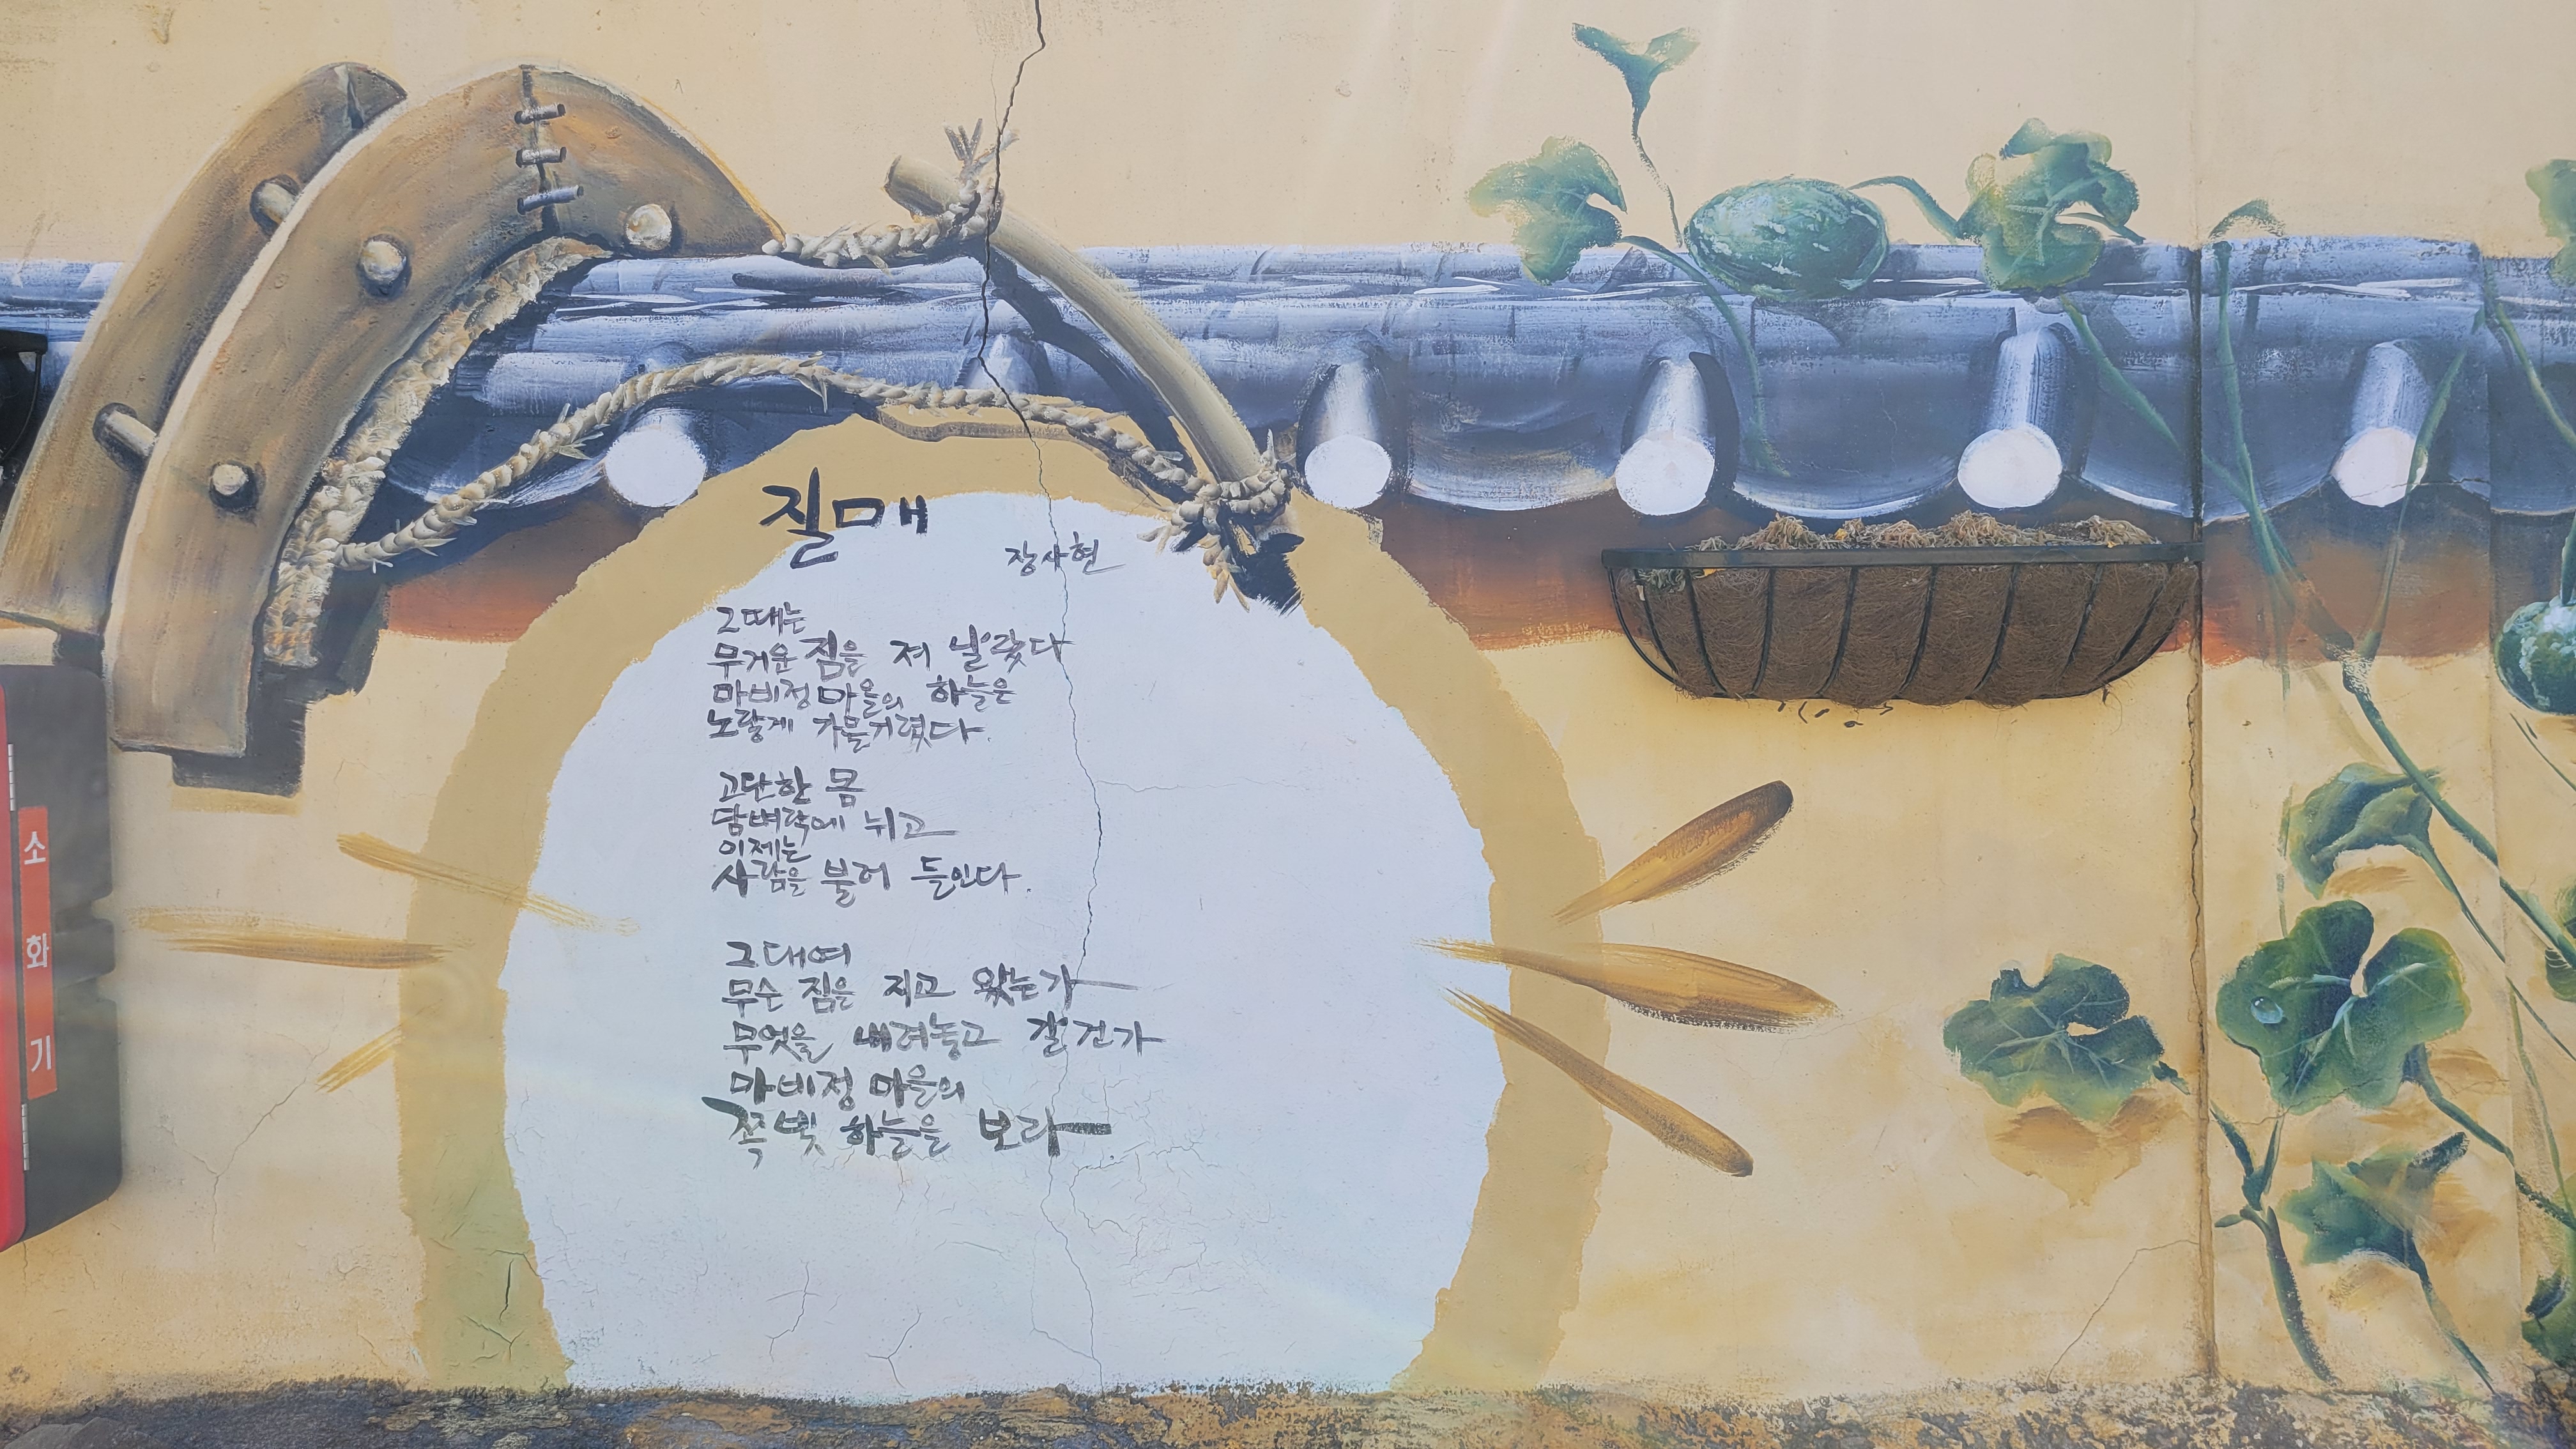 질매
장사현
그때는
무거운 짐을 져 날랐다
마비정마을의 하늘은
노랗게 가물거렸다.
고단한 몸
담벼락에 뉘고
이제는
사람을 불러 들인다.
그대여
무슨 짐을 지고 왔는가
무엇을 내려놓고 갈건가
마비정 마을의
쪽빛 하늘을 보라
소화기